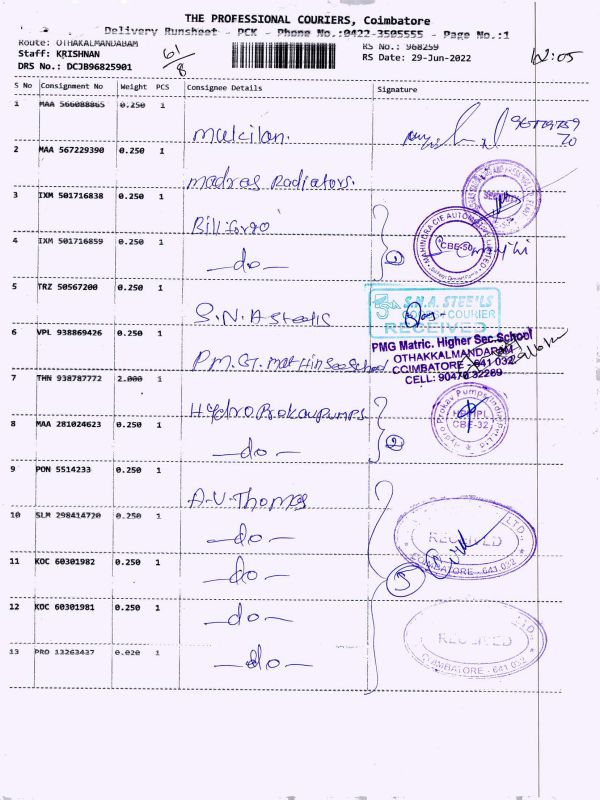 THE PROFESSIONAL COURIERS, Coimbatore
Delivery Runsheet - PCK - Phone No.:0422-3505555 - Page No.:1
Route: OTHAKALMANDABAM
Staff: KRISHNAN
DRS No.: DCJB96825901
61/8
RS No.: 968259
RS Date: 29-Jun-2022
12:05
S No Consignment No Weight PCS Consignee Details Signature
1 MAA 566088865 0.250 1 Mukilan.
2 MAA 567229390 0.250 1 Madras Radiators.
3 IXM 501716838 0.250 1 Billforgo
4 IXM 501716859 0.250 1 —do—
MAHINDRA CIE AUTOMOTIVE LIMITED
CBE-50
1
5 TRZ 50567200 0.250 1 S.N.A Steels
S.N.A. STEELS
COURIER
RECEIVED
6 VPL 938869426 0.250 1 P.M.G. Mat Hin Sec School
PMG Matric. Higher Sec.School
OTHAKKALMANDARAM
COIMBATORE - 641 032
CELL: 90470 32289
7 THN 938787772 2.000 1 Hydro Prokav Pumps
8 MAA 281024623 0.250 1 —do—
Hydro Prokav Pumps
CBE-32
2
9 PON 5514233 0.250 1 A.V. Thomas
10 SLM 298414720 0.250 1 —do—
11 KOC 60301982 0.250 1 —do—
12 KOC 60301981 0.250 1 —do—
13 PRO 13263437 0.020 1 —do—
RECEIVED
COIMBATORE - 641 032
RECEIVED
COIMBATORE - 641 032